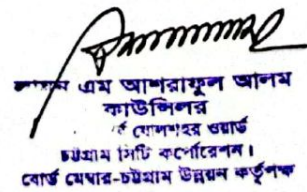 এম আশরাফুল আলম
কাউন্সিলর
ওয়ার্ড
চট্টগ্রাম সিটি কর্পোরেশন।
বোর্ড মেম্বার-চট্টগ্রাম উন্নয়ন কর্তৃপক্ষ